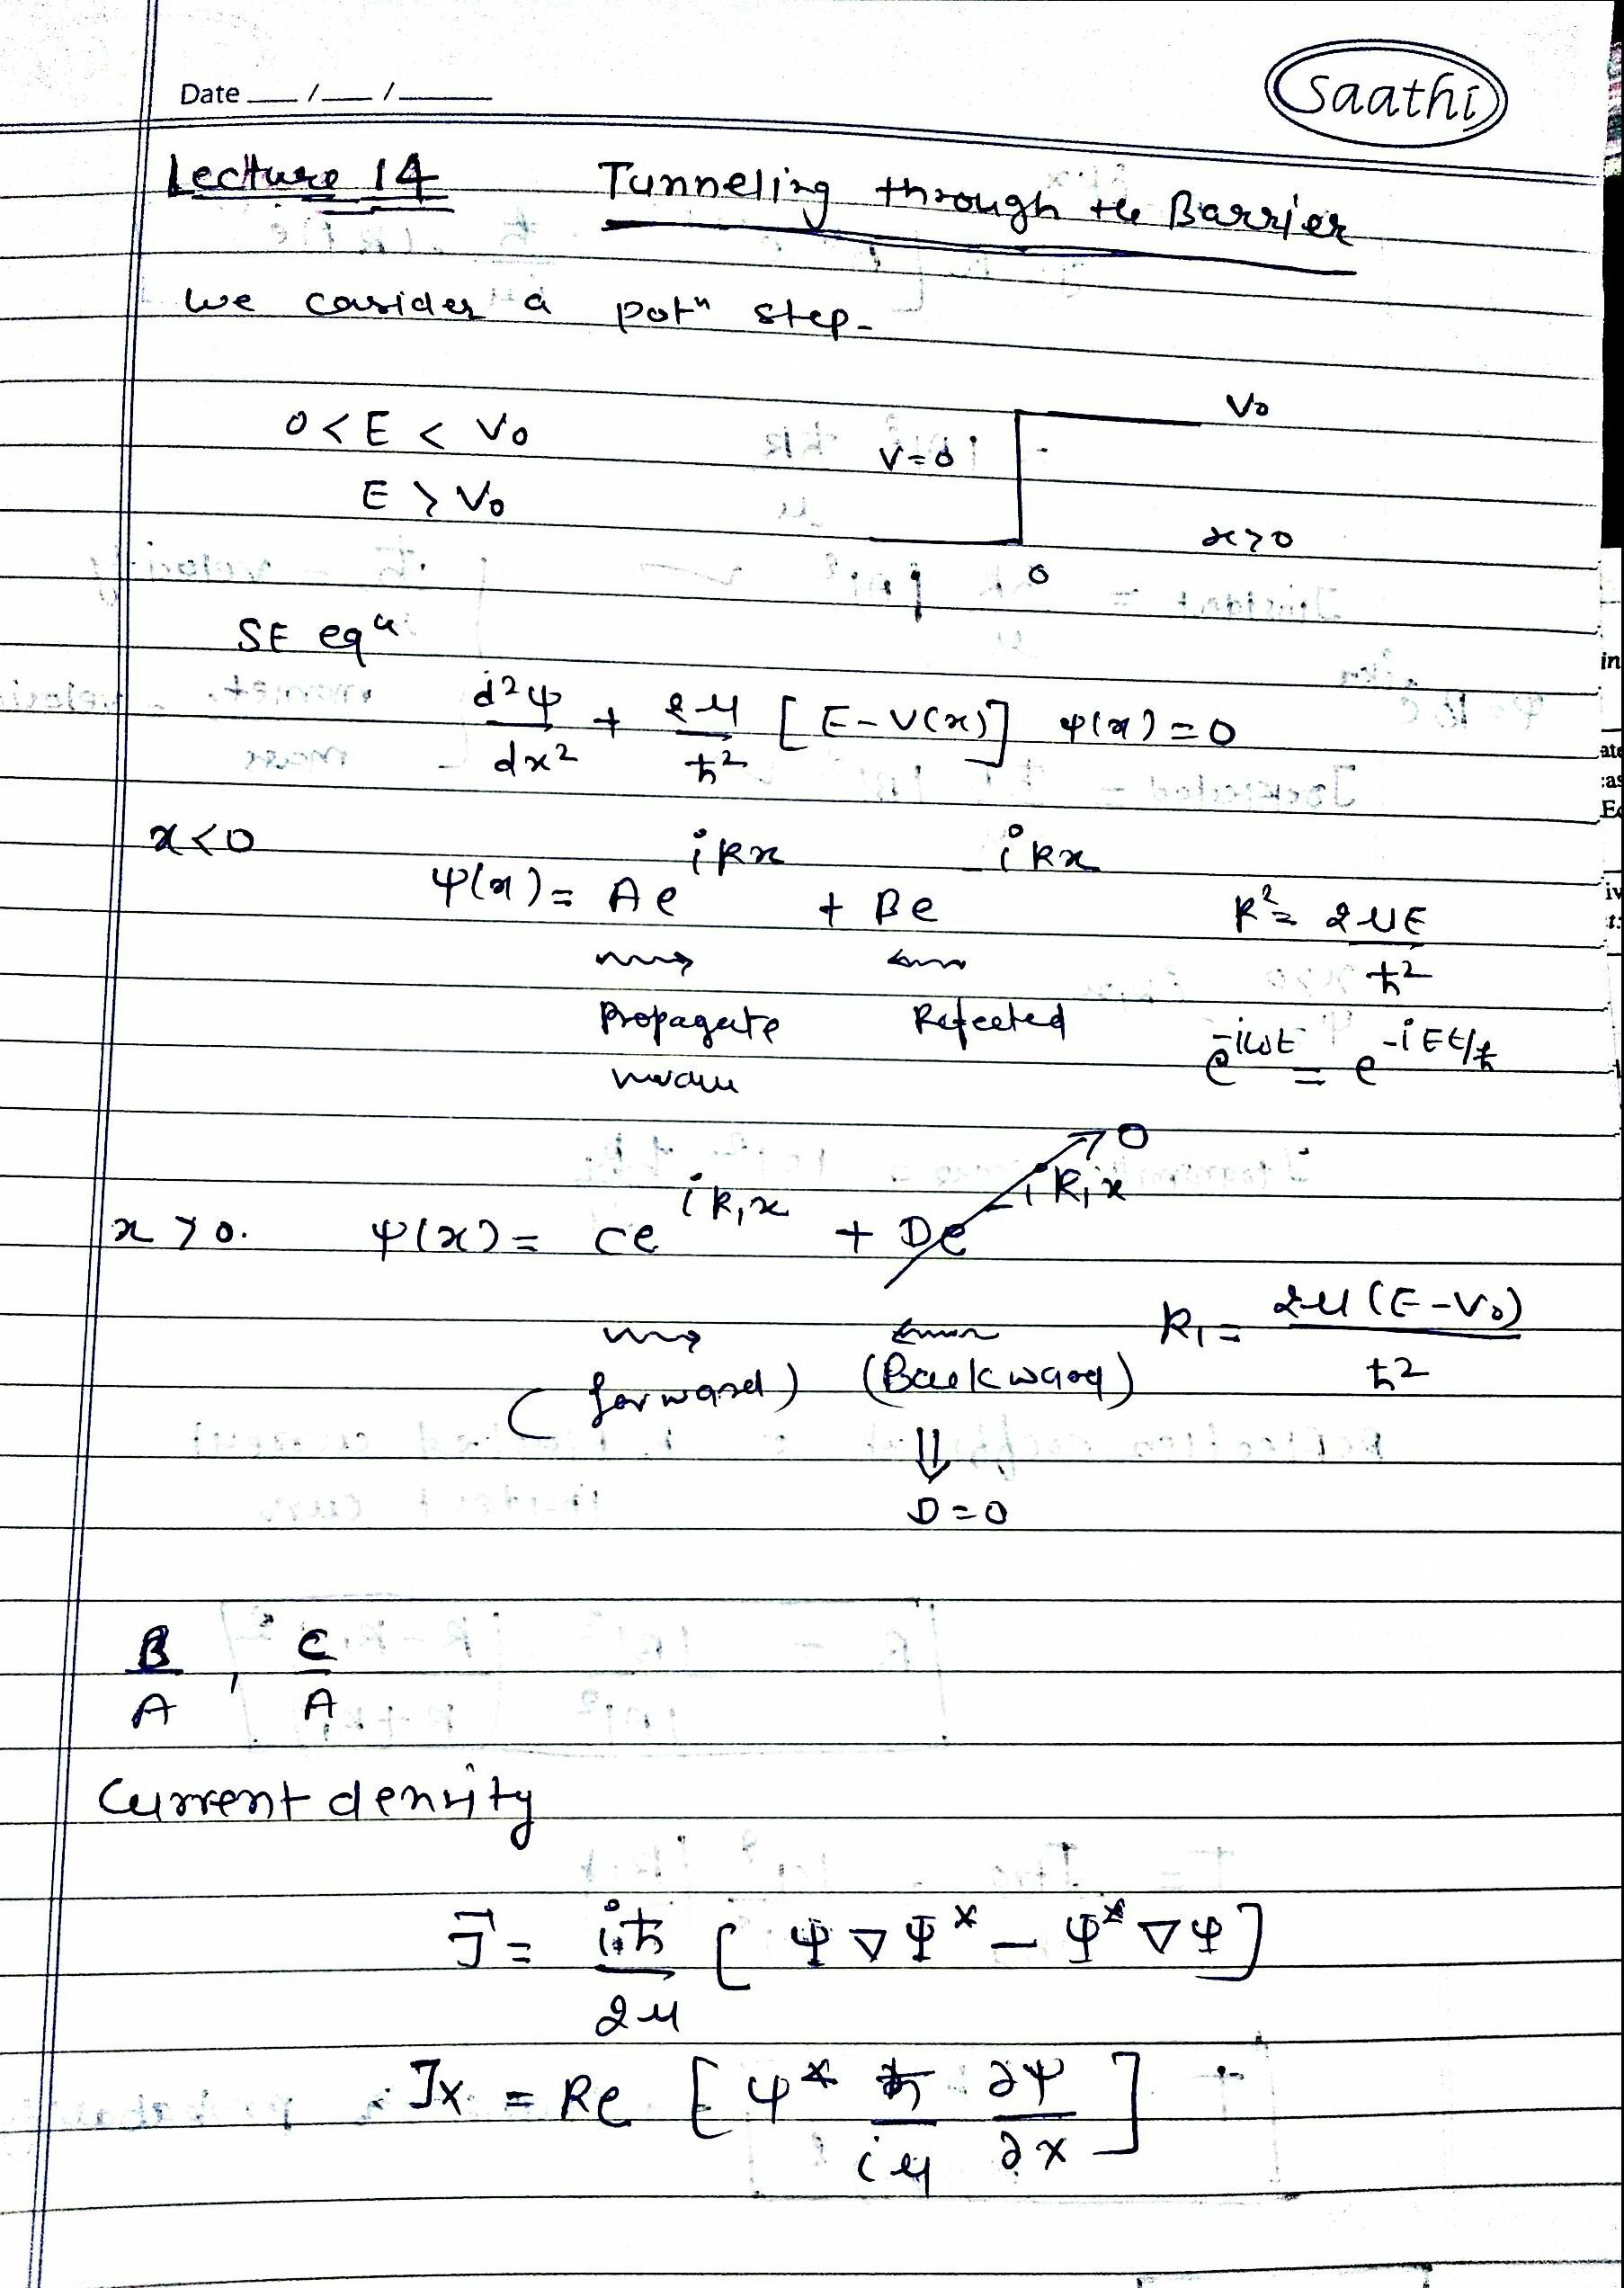 Date __/__/____
Saathi
Lecture 14 Tunneling through the Barrier
We cosider a potⁿ step-
0 < E < V₀
E > V₀
V₀
V=0
x>0
0
SE eqⁿ
d²ψ/dx² + 2μ/ħ² [E-V(x)] ψ(x) = 0
x<0
ψ(x) = Ae^{ikx} + Be^{-ikx} k² = 2μE/ħ²
Propagate Reflected e^{-iωt} = e^{-iEt/ħ}
x > 0. ψ(x) = Ce^{ik₁x} + De^{-ik₁x} → 0
k₁ = 2μ(E-V₀)/ħ²
(forward) (Backward)
⇓
D = 0
B/A , C/A
Current density
J⃗ = iħ/2μ [Ψ∇Ψ* - Ψ*∇Ψ]
Jx = Re [ψ* ħ/iμ ∂ψ/∂x]